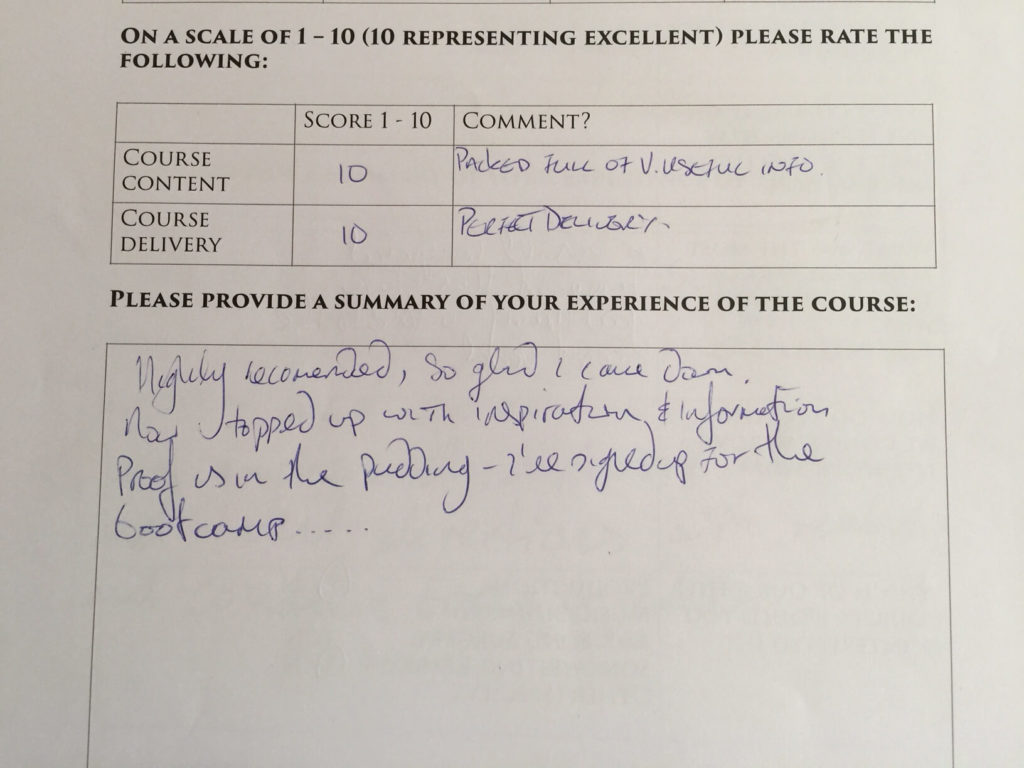 ON A SCALE OF 1 – 10 (10 REPRESENTING EXCELLENT) PLEASE RATE THE
FOLLOWING:
SCORE 1 - 10 COMMENT?
COURSE CONTENT 10 PACKED FULL OF V. USEFUL INFO.
COURSE DELIVERY 10 PERFECT DELIVERY.
PLEASE PROVIDE A SUMMARY OF YOUR EXPERIENCE OF THE COURSE:
Highly recomended, So glad i came down.
topped up with inspiration & information
Proof is in the pudding - i've signed up for the
bootcamp.....